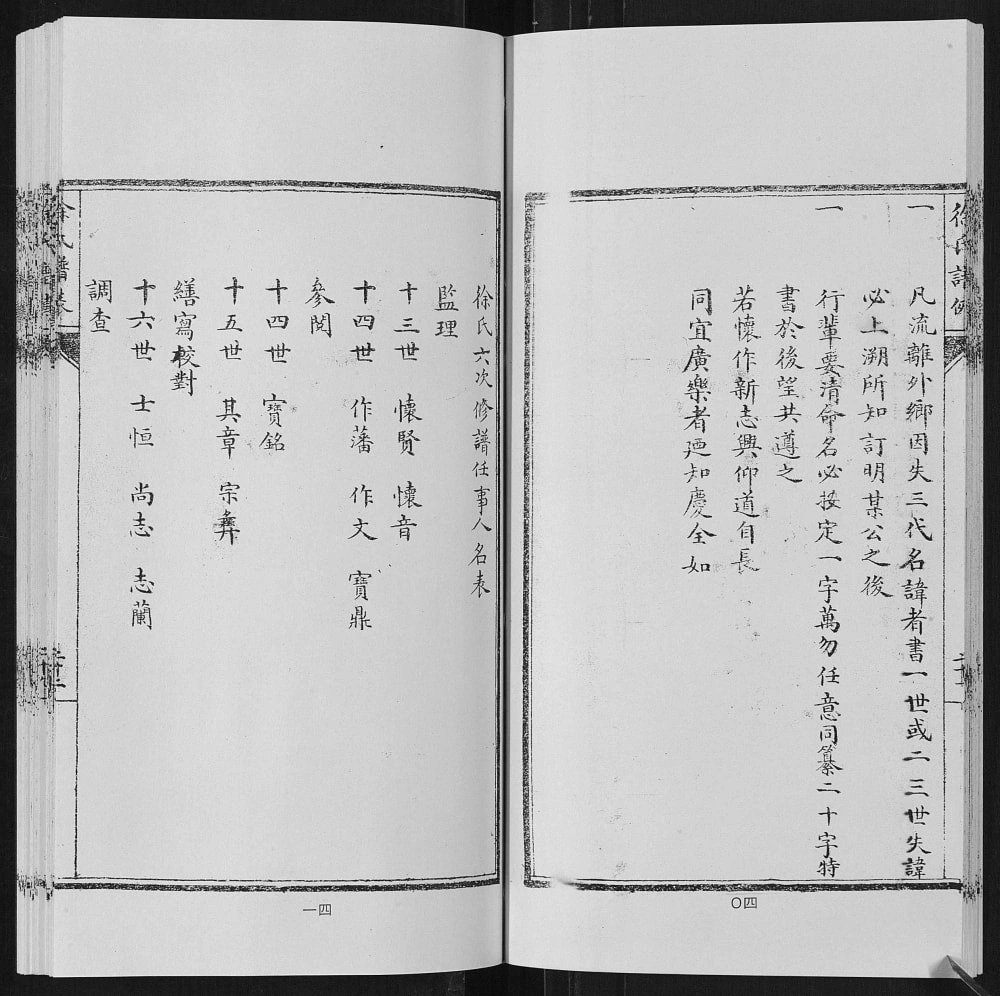 徐氏譜例
一 凡流離外鄉因失三代名諱者書一世或二三世失諱
必上溯所知訂明某公之後
一 行輩要清命名必按定一字萬勿任意同纂二十字特
書於後望共遵之
若懷作新志興仰道自長
同宜廣樂者廼知慶全如
二十一
四〇
徐氏六次修譜任事人名表
監理
十三世 懷賢 懷音
十四世 作藩 作文 寶鼎
參閱
十四世 寶銘
十五世 其章 宗彝
繕寫校對
十六世 士恒 尚志 志蘭
調查
徐氏譜表
二十二
四一